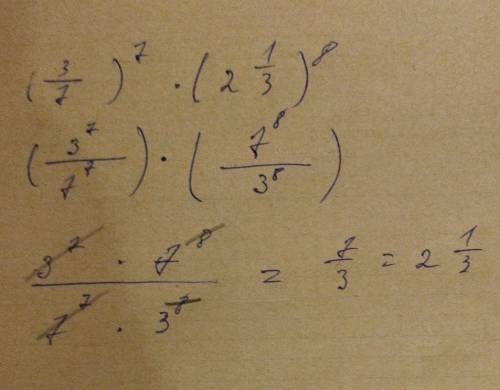 (3/7)^7 · (2 1/3)^8
(3^7/7^7) · (7^8/3^8)
(3^7 · 7^8)/(7^7 · 3^8) = 7/3 = 2 1/3